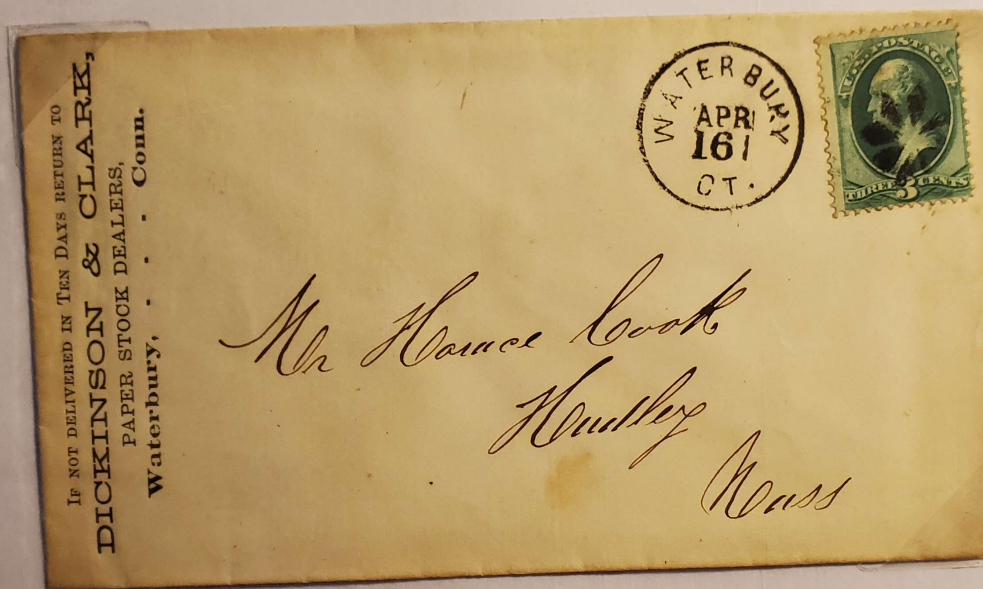 IF NOT DELIVERED IN TEN DAYS RETURN TO
DICKINSON & CLARK,
PAPER STOCK DEALERS,
Waterbury, . . . . Conn.
WATERBURY
APR
16
CT.
U.S. POSTAGE
THREE 3 CENTS
Mr Horace Cook
Hadley
Mass